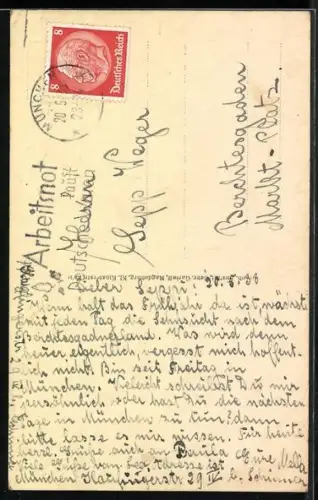 8
8
Deutsches Reich
MÜNCHEN
20.5.
Arbeitsnot
kauft
Herrn
Sepp Weger
Berchtesgaden
Markt-Platz
Lieber Seppi!
Wann halt das Frühjahr da ist, wächst
mit jeden Tag die Sehnsucht nach dem
Berchtesgadnerland. Was wird denn
heuer eigentlich, vergesst mich hoffent-
lich nicht. Bin seit Freitag in
München. Vieleicht schreibst Du mir
persöhnlich oder hast Du die nächsten
Tage in München zu tun? dann
bitte lasse es mir wissen. Für heute
herzl. Grüße auch an
Eure Mella
Adresse ist
München
29 IV b.